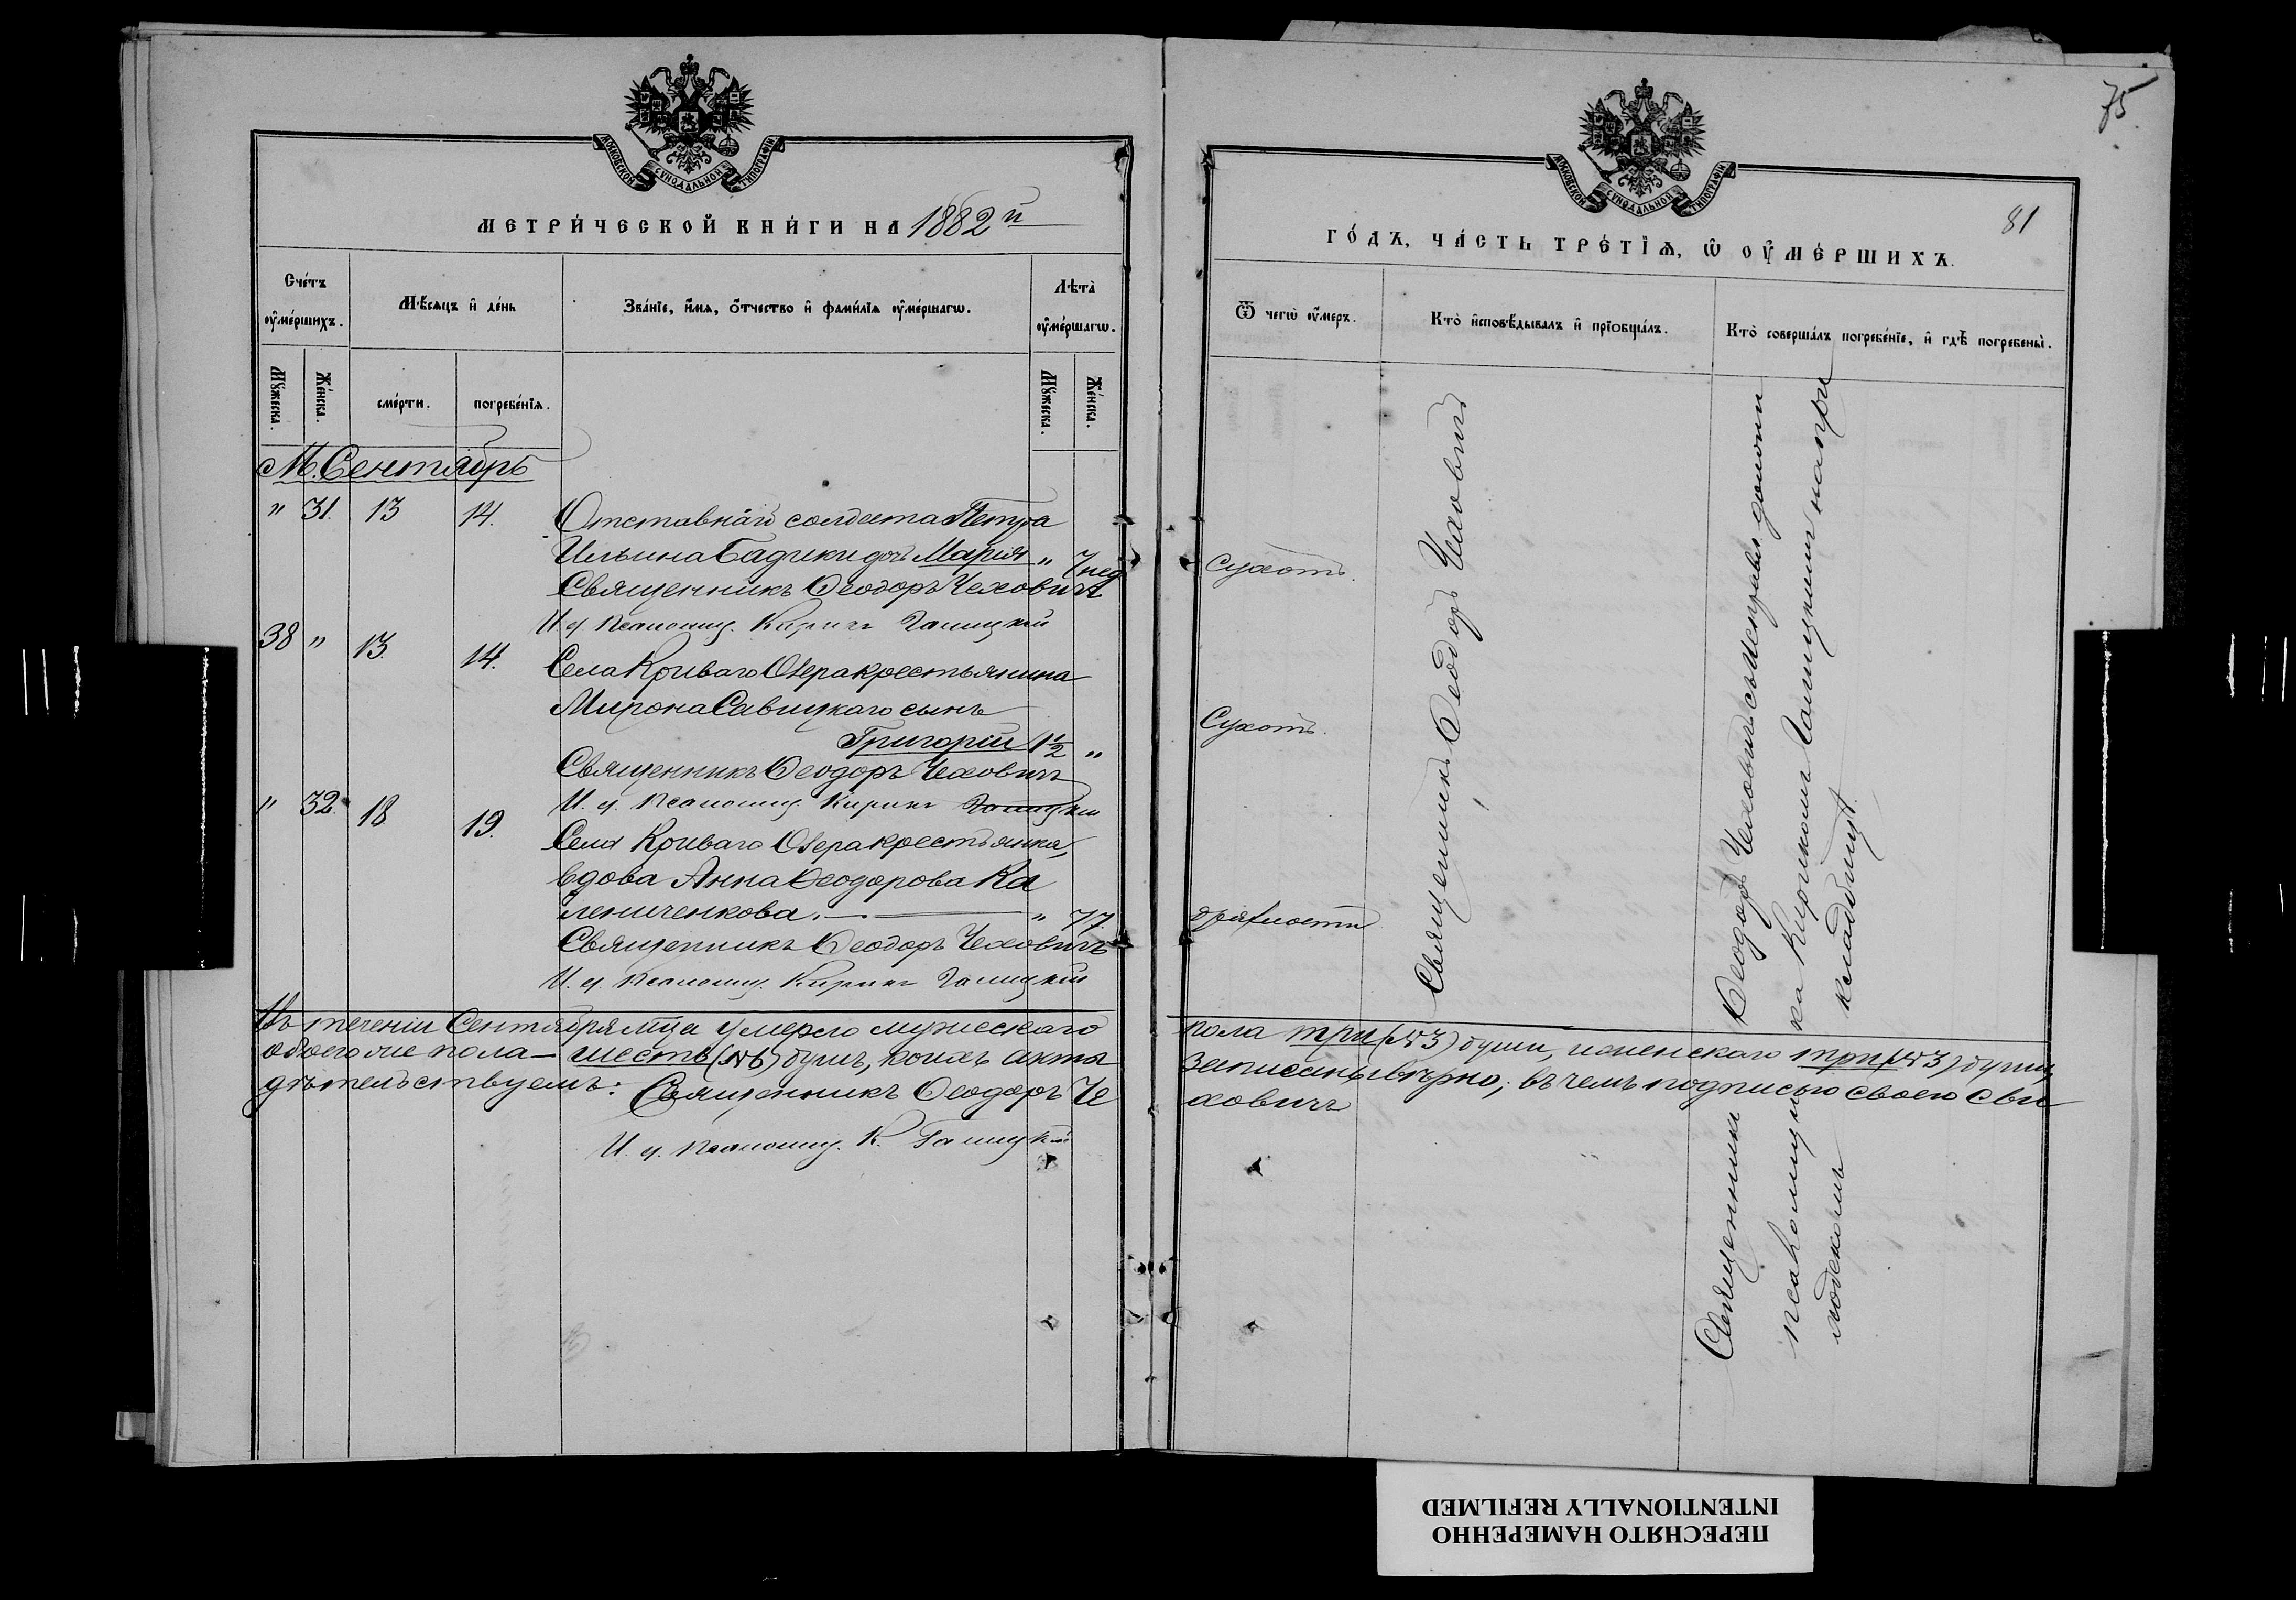 МОСКОВСКОЙ СУНОДАЛЬНОЙ ТИПОГРАФІИ
МЕТРИ́ЧЕСКОЙ КНИ́ГИ НА 1882й
Сче́тъ оу҆ме́ршихъ.
Мꙋ́жеска.
Же́нска.
Мѣ́сяцъ и҆ де́нь
сме́рти.
погребе́нїѧ.
Зва́нїе, и҆́мѧ, ѻ҆́тчество и҆ фами́лїѧ оу҆ме́ршагѡ.
Лѣ̑та оу҆ме́ршагѡ.
Мꙋ́жеска.
Же́нска.
М. Сентябрь
" 31. 13 14. Отставнаго солдата Петра
Ильина Бадики дочь Марія " 7 нед
Священникъ Ѳеодоръ Чеховичъ
И. д. Псаломщ. Кирикъ Галицкій
38 " 13. 14. Села Криваго Озера крестьянина
Мирона Савицкаго сынъ
Григорій 1½ "
Священникъ Ѳеодоръ Чеховичъ
И. д. Псаломщ. Кирикъ Галицкій
" 32. 18 19. Села Криваго Озера крестьянка,
вдова Анна Ѳеодорова Ка
лениченкова. — " 77.
Священникъ Ѳеодоръ Чеховичъ
И. д. Псаломщ. Кирикъ Галицкій
Въ теченіи Сентября мца умерло мужескаго
обоего же пола — шесть (№6) душъ, коихъ акты
дѣтельствуемъ: Священникъ Ѳеодоръ Че
И. д. Псаломщ. К. Галицкій
75
МОСКОВСКОЙ СУНОДАЛЬНОЙ ТИПОГРАФІИ
81
ГО́ДЪ, ЧА́СТЬ ТРЕ́ТЇѦ, Ѡ҆ ОУ҆МЕ́РШИХЪ.
Ѿ чегѡ̀ оу҆́меръ.
Кто̀ и҆сповѣ́дывалъ и҆ прїобща́лъ.
Кто̀ соверша́лъ погребе́нїе, и҆ гдѣ̀ погребены̀.
Сухотъ.
Сухотъ.
дряхлости
Священникъ Ѳеодоръ Чеховичъ
Священникъ Ѳеодоръ Чеховичъ съ исправл. должн
псаломщика Кирикомъ Галицкимъ на при
ходскомъ кладбищѣ.
пола три (№3) души, женскаго три (№3) души,
записаны вѣрно, въ чемъ подписью своею сви
ховичъ
ПЕРЕСНЯТО НАМЕРЕННО
INTENTIONALLY REFILMED